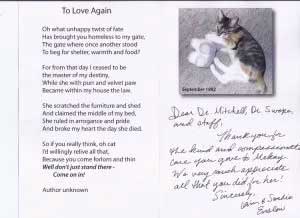 To Love Again
Oh what unhappy twist of fate
Has brought you homeless to my gate,
The gate where once another stood
To beg for shelter, warmth and food?
For from that day I ceased to be
the master of my destiny,
While she with purr and velvet paw
Became within my house the law.
She scratched the furniture and shed
And claimed the middle of my bed,
She ruled in arrogance and pride
And broke my heart the day she died.
So if you really think, oh cat
I'd willingly relive all that,
Because you come forlorn and thin
Well don't just stand there -
Come on in!
Author unknown
September 1992
Dear Dr. Mitchell, Dr. Swoper
and staff,
Thank you for
the kind and compassionate
care you gave to
We very much appreciate
all that you did for her!
Sincerely,
and